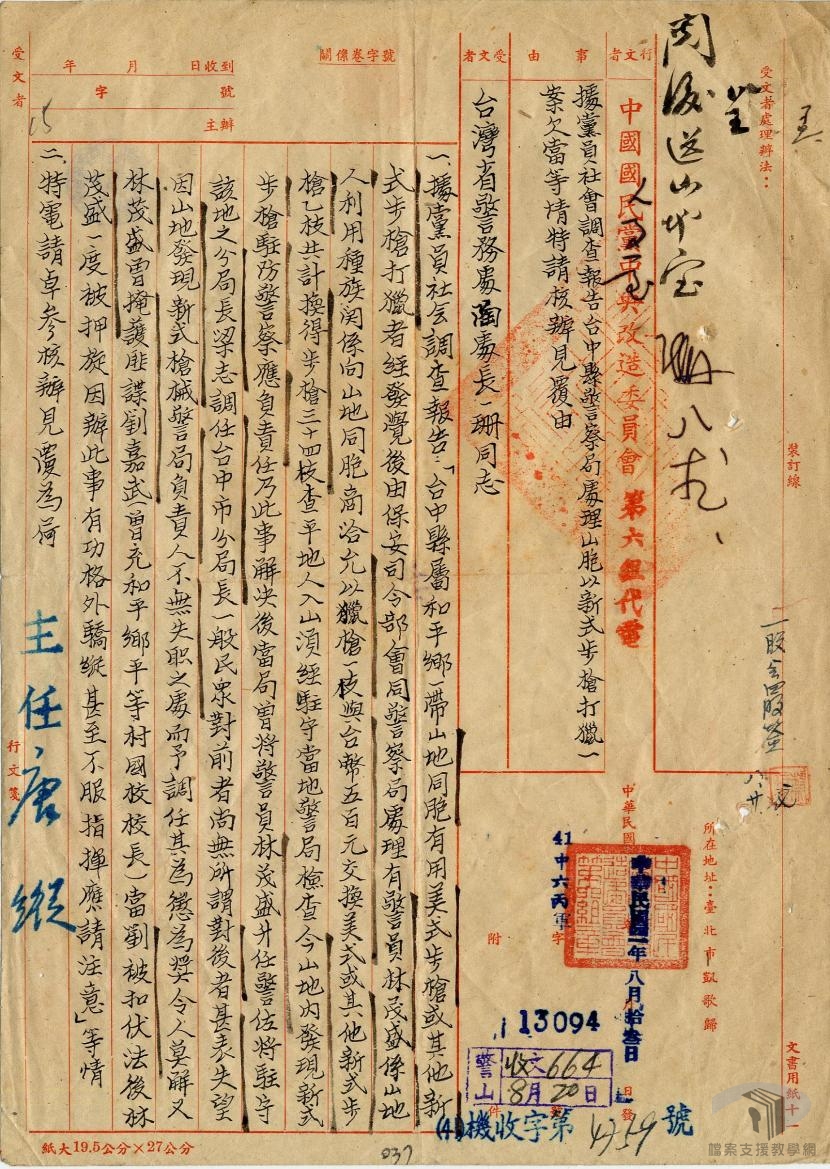 受文者處理辦法：
閱後送山地室
八
裝訂線
二股會四股簽
八、廿
所在地址：臺北市凱歌歸
文書用紙十一
行文者
中國國民黨中央改造委員會 第六組代電
事由
據黨員社會調查報告台中縣警察局處理山胞以新式步槍打獵一
案欠當等情特請核辦見覆由
受文者
台灣省警務處陶處長一珊同志
中華民國
中華民國四一年八月拾叁日
41中六丙軍
字
13094
附
件
日發
警山
收文664
8月20日
(41)機收字第4759號
一、據黨員社会調查報告：「台中縣屬和平鄉一帶山地同胞有用美式步槍或其他新
式步槍打獵者經發覺後由保安司令部會同警察局處理有警員林茂盛係山地
人利用種族関係向山地同胞商洽允以獵槍一枝與台幣五百元交換美式或其他新式步
槍乙枝共計換得步槍三十四枝查平地人入山須經駐守當地警局檢查今山地內發現新式
步槍駐防警察應負責任乃此事解决後當局曾將警員林茂盛升任警佐將駐守
該地之分局長梁志調任台中市分局長一般民衆對前者尚無所謂對後者甚表失望
因山地發現新式槍械警局負責人不無失职之處而予調任其為懲為奖令人莫解又
林茂盛曾掩護匪諜劉嘉武（曾充和平鄉平等村國校校長）當劉被扣伏法後林
茂盛一度被押旋因辦此事有功格外驕縱甚至不服指揮應請注意」等情
二、特電請卓参核辦見覆為荷
主任唐縱
關係卷字號
收到日 月 年
號 字
主辦
15
受文者
行文箋
紙大19.5公分×27公分
037
檔案支援教學網